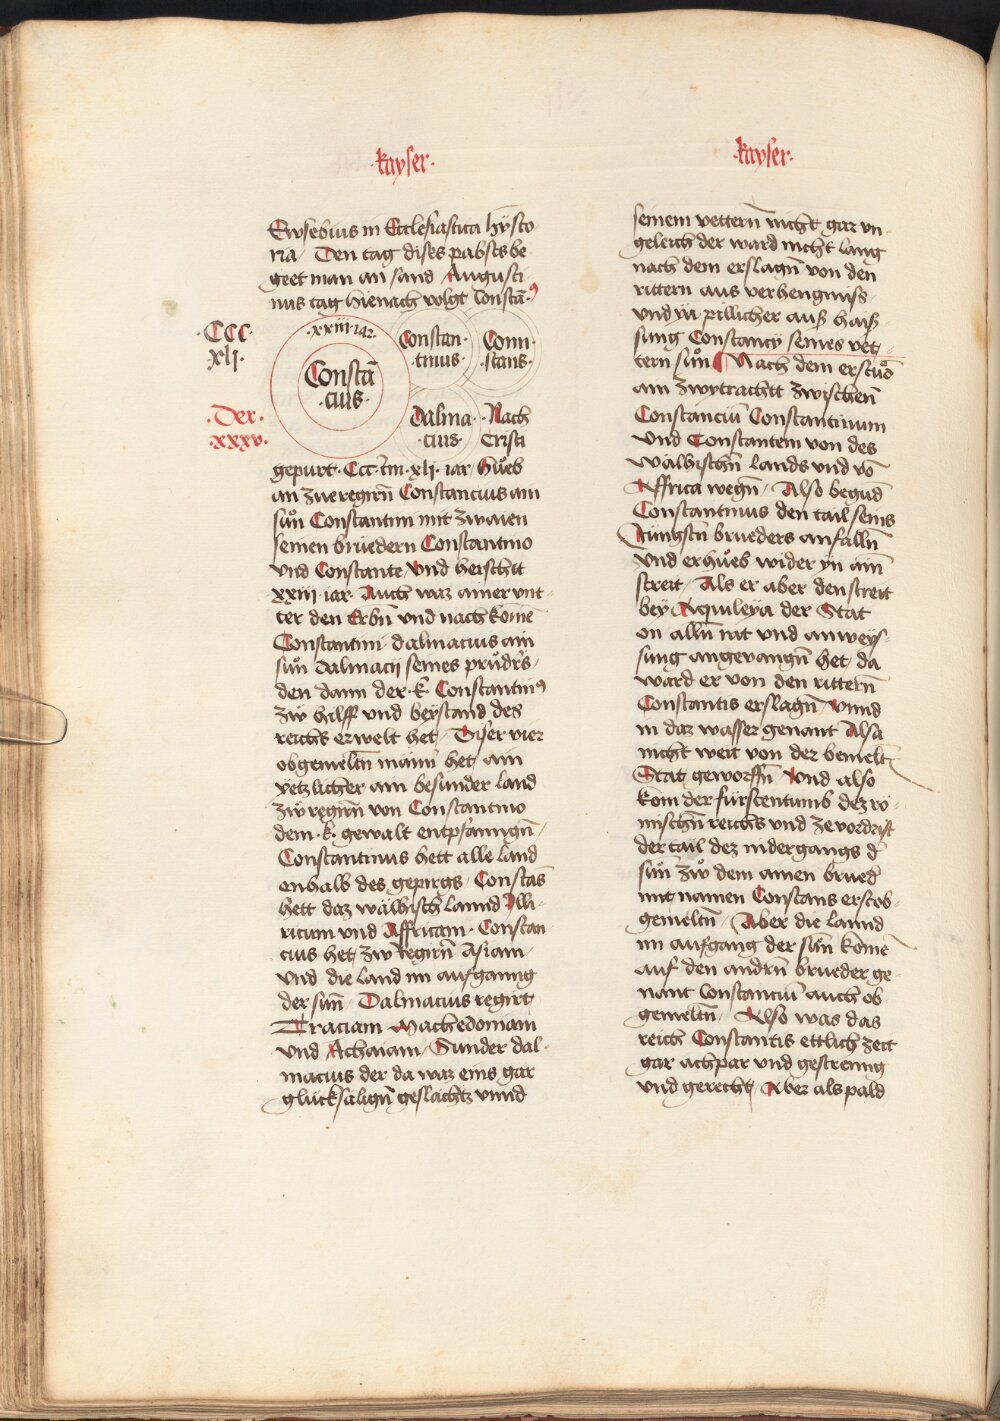 ·kayser·
Ewsebius in Ecclesiastica hÿsto
ria· Den tag dises pabsts be
geet man an sand Augusti
nus tag hienach volgt Constā⁹
·CCC·
·xlj·
·Der·
·xxxv·
·xxiiij iar·
Constā
·cius·
Constan·
·tinus·
Conn·
·stans·
Dalma·
·cius·
·Nach
Cristi
gepurt· CCC t̄m· xlj· iar/ Hůeb
an zue regirn̄ Constancius ain
sůn Constantini mit zwaien
seinen brüedern Constantino
vnd Constante/ vnd herscht
xxiiij iar· Auch waz ainer vnt·
ter den Erbn̄ vnd nachkömē
Constantini· dalmacius ain
sůn Dalmacij seines průdr̄s/
den dann der·k̄· Constantin⁹
zw̄ hilff vnd beÿstand des
reichs erwelt het/ Diser vier
obgemeltn̄ mann̄ het ain
yetzlicher ain besunder land
zw̄ regirn̄ von Constantino
dem·k̄· gewalt entpfanngn̄/
Constantinus hett alle land
enhalb des gepirgs/ Constās
hett daz wälhisch lannd Illi·
ricum vnd Affricam· Constan·
cius het/ zw̄ regirn̄ Asiam/
vnd die land im aufganng
der sun̄· Dalmacius regirt
Traciam Machedoniam
vnd Achaiam/ Sunder dal·
macius der da waz eins gar
glücksälign̄ geslächtz vnnd
·kayser·
seinem vettern̄ nicht gar vn·
geleich der ward nicht lang
nach dem erslagn̄ von den
rittern aus verhengnüss
vnd yn pillicher auß haiß·
sung Constancy seines vet·
tern sůn Nach dem erstůd
ain zwytracht zwischen̄
Constanciū Constantinum
vnd Constantem von des
wälhischn̄ lands vnd vō
Affrica wegn̄/ Also begūd
Constantinus den tail seins
Jüngstn̄ brueders anfalln̄
vnd erhůeb wider yn ain̄
streit/ Als er aber den streit
bey Aquileÿa der Stat
on alln̄ rat vnd anweys·
sung angevangn̄ het/ da
ward er von den rittern̄
Constantis erslagn̄/ Vnnd
in daz wasser genant Alsa
nicht weit von der bemelt̄
Stat geworffn̄ Vnd also
kom der fürstentumb dez rö·
mischn̄ reichs vnd zevordrist
der tail dez nidergangs d̄
sůn zw̄ dem ainen brued̄
mit namen Constans erstob·
gemeltn̄/ Aber die lannd
im aufgang der sůn kömē
auf den andrn̄ brueder ge·
nant Constanciū auch ob·
gemeltn̄/ Also was das
reich Constantis ettlich zeit
gar achpar vnd gestrenng
vnd gerecht/ Aber als pald